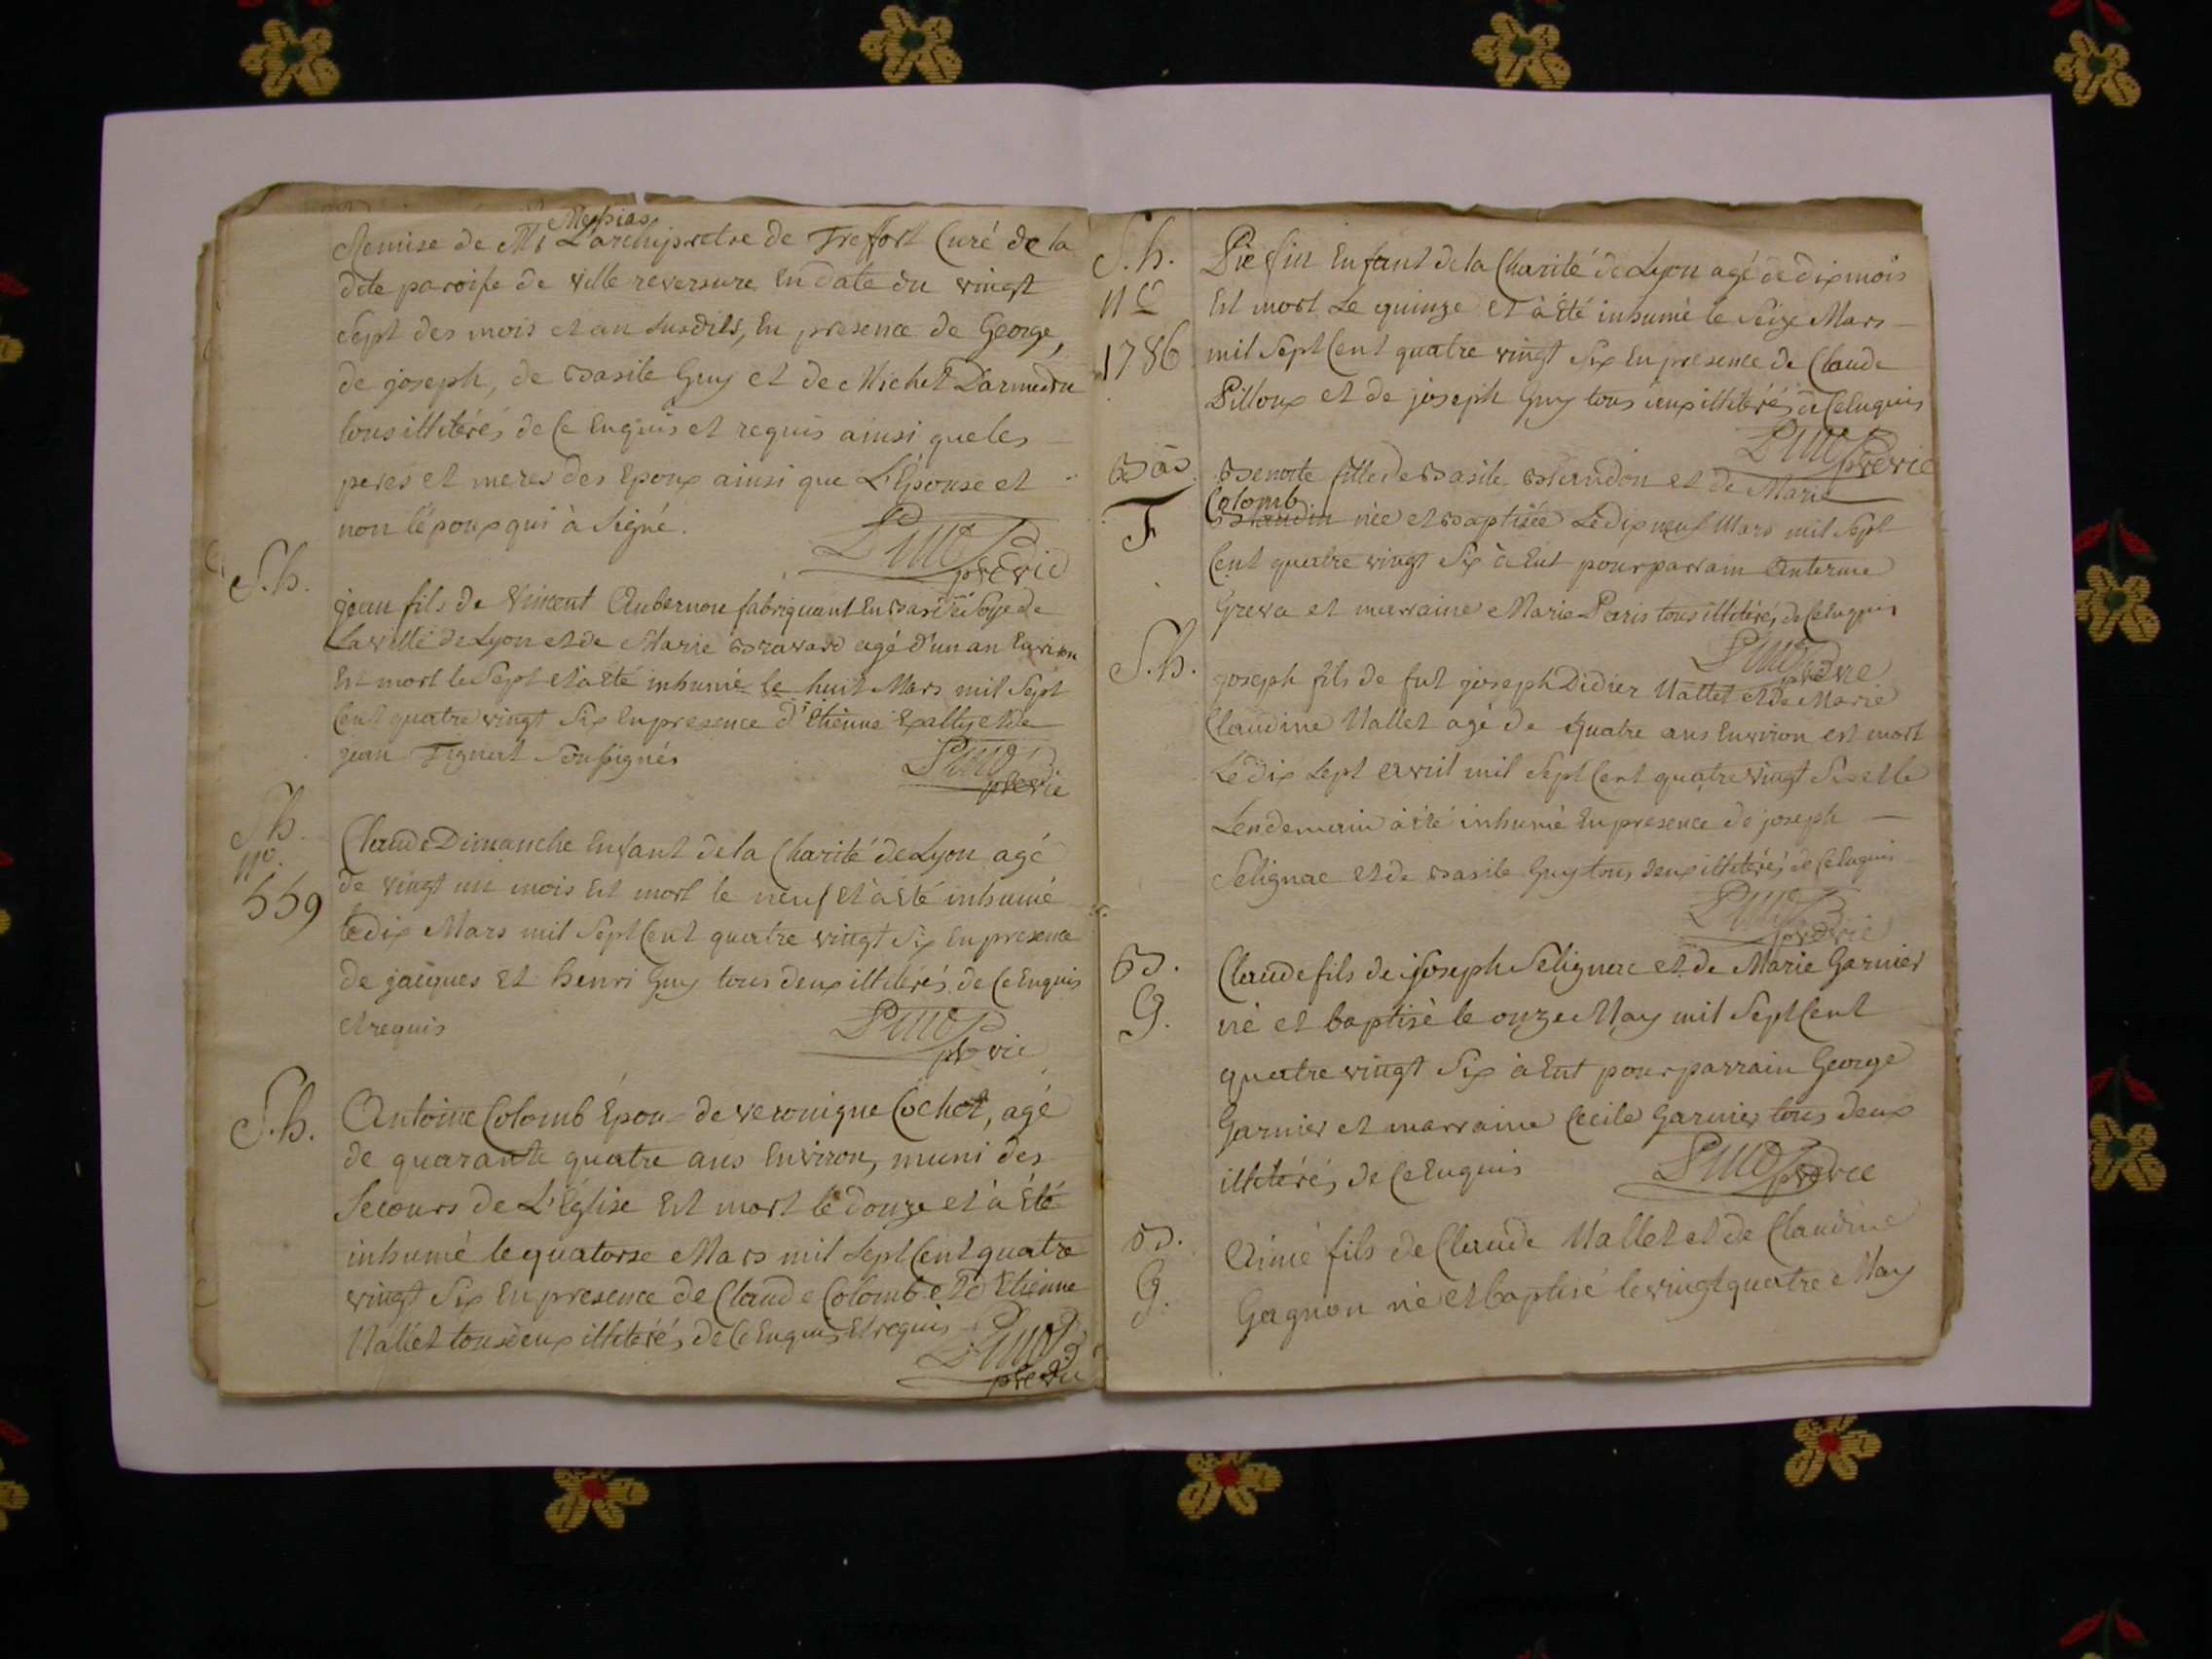 Messias
Remise de Mr L'archipretre de Treffort Curé de la
dite paroisse de Ville reversure En date du vingt
Sept des mois et an susdits, En presence de George,
de joseph, de Basile Guy et de Michel Darmedru
tous illitérés de Ce Enquis et requis ainsi que les
peres et meres des Epoux ainsi que L'Epouse et
non l'époux qui à signé.
S.h.
jean fils de Vincent Aubernon fabriquant En bas de Soye de
La ville de Lyon et de Marie Bravard agé d'un an Environ
Est mort le Sept et à Eté inhumé le huit Mars mil Sept
Cent quatre vingt Six En presence d'Etienne et de
jean Tignat Soussignés
S.h.
No.
559
Claude Dimanche Enfant de la Charité de Lyon agé
de vingt un mois Est mort le neuf Et à Eté inhumé
le dix Mars mil Sept Cent quatre vingt Six En presence
de jacques Et henri Guy tous deux illiterés de Ce Enquis
et requis
S.h.
Antoine Colomb Epoux de Veronique Cochet, agé
de quarante quatre ans Environ, muni des
Secours de L'Eglise Est mort le douze et à Eté
inhumé le quatorse Mars mil Sept Cent quatre
vingt Six En presence de Claude Colomb et d'Etienne
Vallet tous deux illiterés de Ce Enquis Et requis
S.h.
No
1786
Enfant de la Charité de Lyon agé de dix mois
Est mort Le quinze Et à Eté inhumé le Seize Mars
mil Sept Cent quatre vingt Six En presence de Claude
Pilloux et de joseph Guy tous deux illitérés de Ce Enquis
Bap.
F
Benoite fille de Basile Blandon et de Marie
Colomb
Blandin née et Baptisée Le dix neuf Mars mil Sept
Cent quatre vingt Six à Eut pour parrain Antoine
Greva et marraine Marie Paris tous illitérés de Ce Enquis
S.h.
joseph fils de fut joseph Didier Vallet et de Marie
Claudine Vallet agé de quatre ans Environ est mort
Le dix Sept avril mil Sept Cent quatre vingt Six et le
Lendemain à été inhumé En presence de joseph
Selignac et de Basile Guy tous deux illitérés de Ce Enquis
B.
G.
Claude fils de joseph Selignac et de Marie Garnier
né et baptisé le onze May mil Sept Cent
quatre vingt Six à Eut pour parrain George
Garnier et marraine Cecile Garnier tous deux
illitérés de Ce Enquis
B.
G.
Aimé fils de Claude Vallet et de Claudine
Gagnon né et baptisé le vingt quatre May